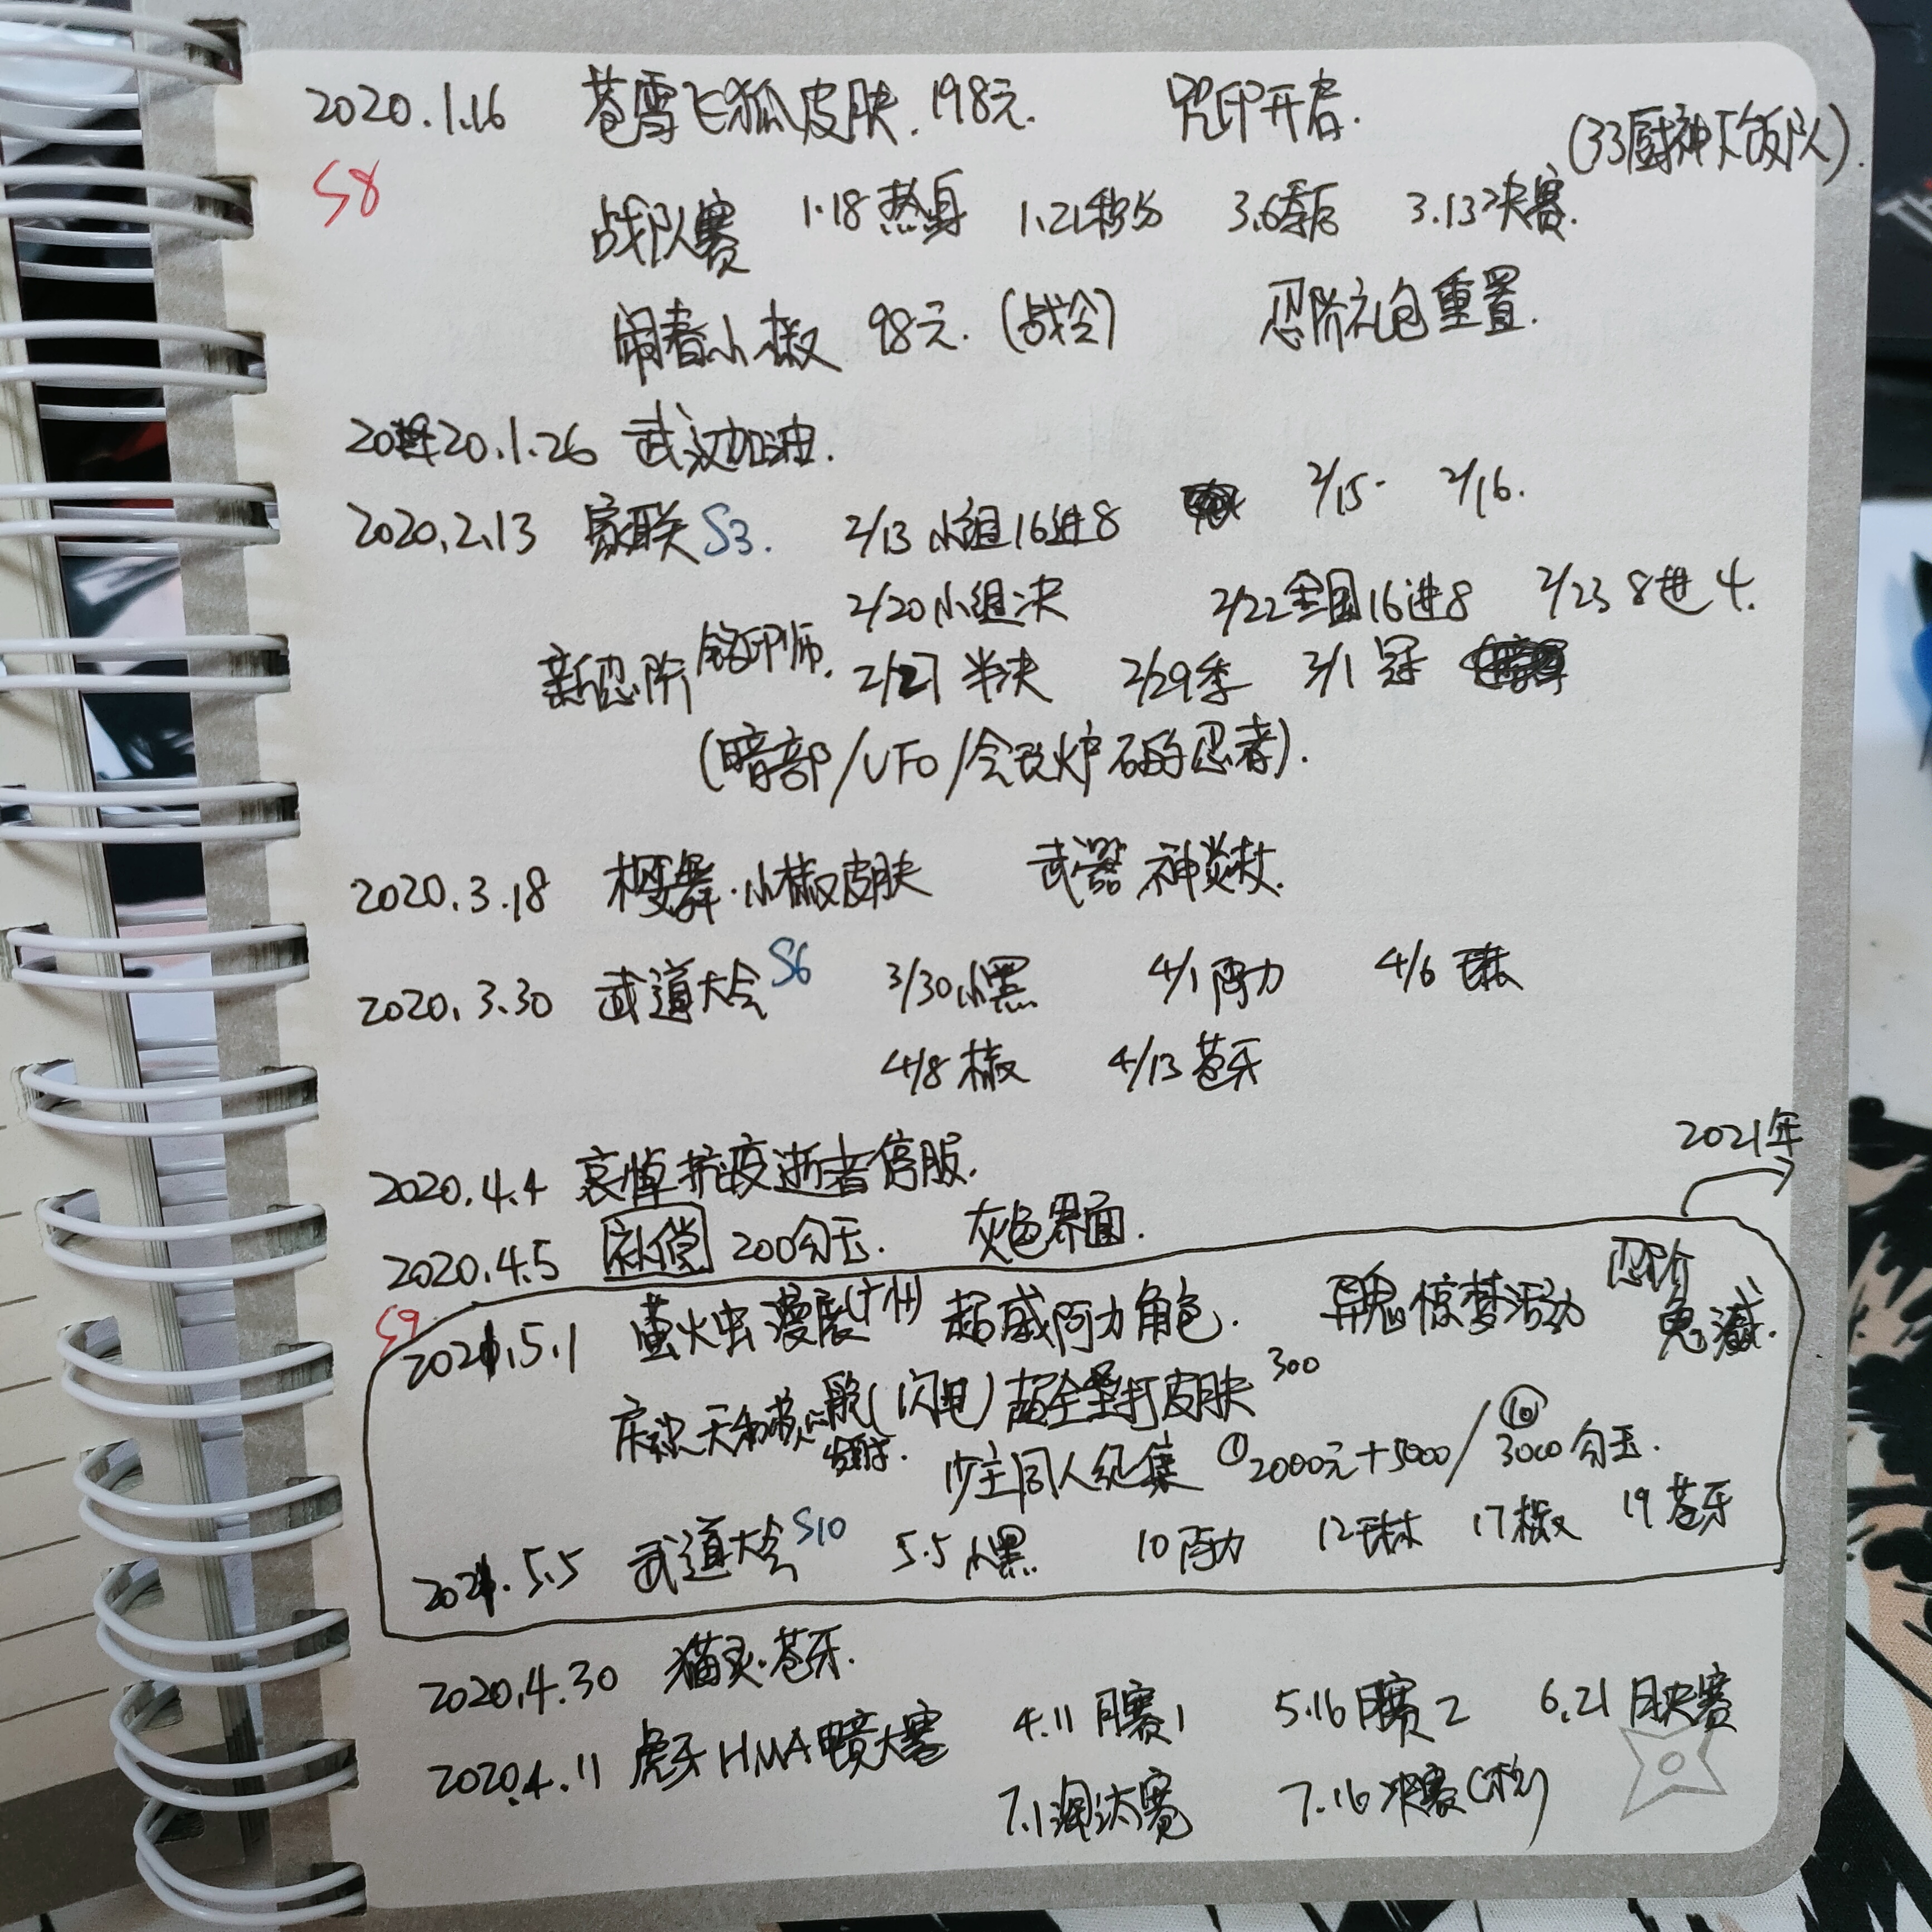 2020.1.16 苍雪飞狐皮肤.198元. 咒印开启.
(33厨神下饭队).
S8
战队赛 1.18热身 1.21积分 3.6季后 3.13决赛.
闹春小椒 98元.(战令) 忍阶礼包重置.
2020.1.26 武汉加油.
2020.2.13 家联S3. 2/13小组16进8 2/15. 2/16.
2/20小组决 2/22全国16进8 2/23 8进4.
新忍阶 铭印师. 2/27半决 2/29季 3/1冠
(暗部/UFO/会玩炉石的忍者).
2020.3.18 樱舞·小椒皮肤 武器 神炎杖.
2020.3.30 武道大会S6 3/30小黑 4/1阿力 4/6琳
4/8椒 4/13苍牙
2021年
2020.4.4 哀悼抗疫逝者停服.
2020.4.5 补偿 200勾玉. 灰色界面.
S9
2021.5.1 萤火虫漫展(广州) 超威阿力角色. 异鬼惊梦活动 忍阶 鬼滅.
庆祝天和 (闪电)超全垒打皮肤300
少主同人纪集 ①2000元+5000/⑩3000勾玉.
2021.5.5 武道大会S10 5.5小黑 10阿力 12琳 17椒 19苍牙
2020.4.30 猫灵·苍牙.
2020.4.11 虎牙HMA 大赛 4.11月赛1 5.16月赛2 6.21月决赛
7.1淘汰赛 7.16决赛